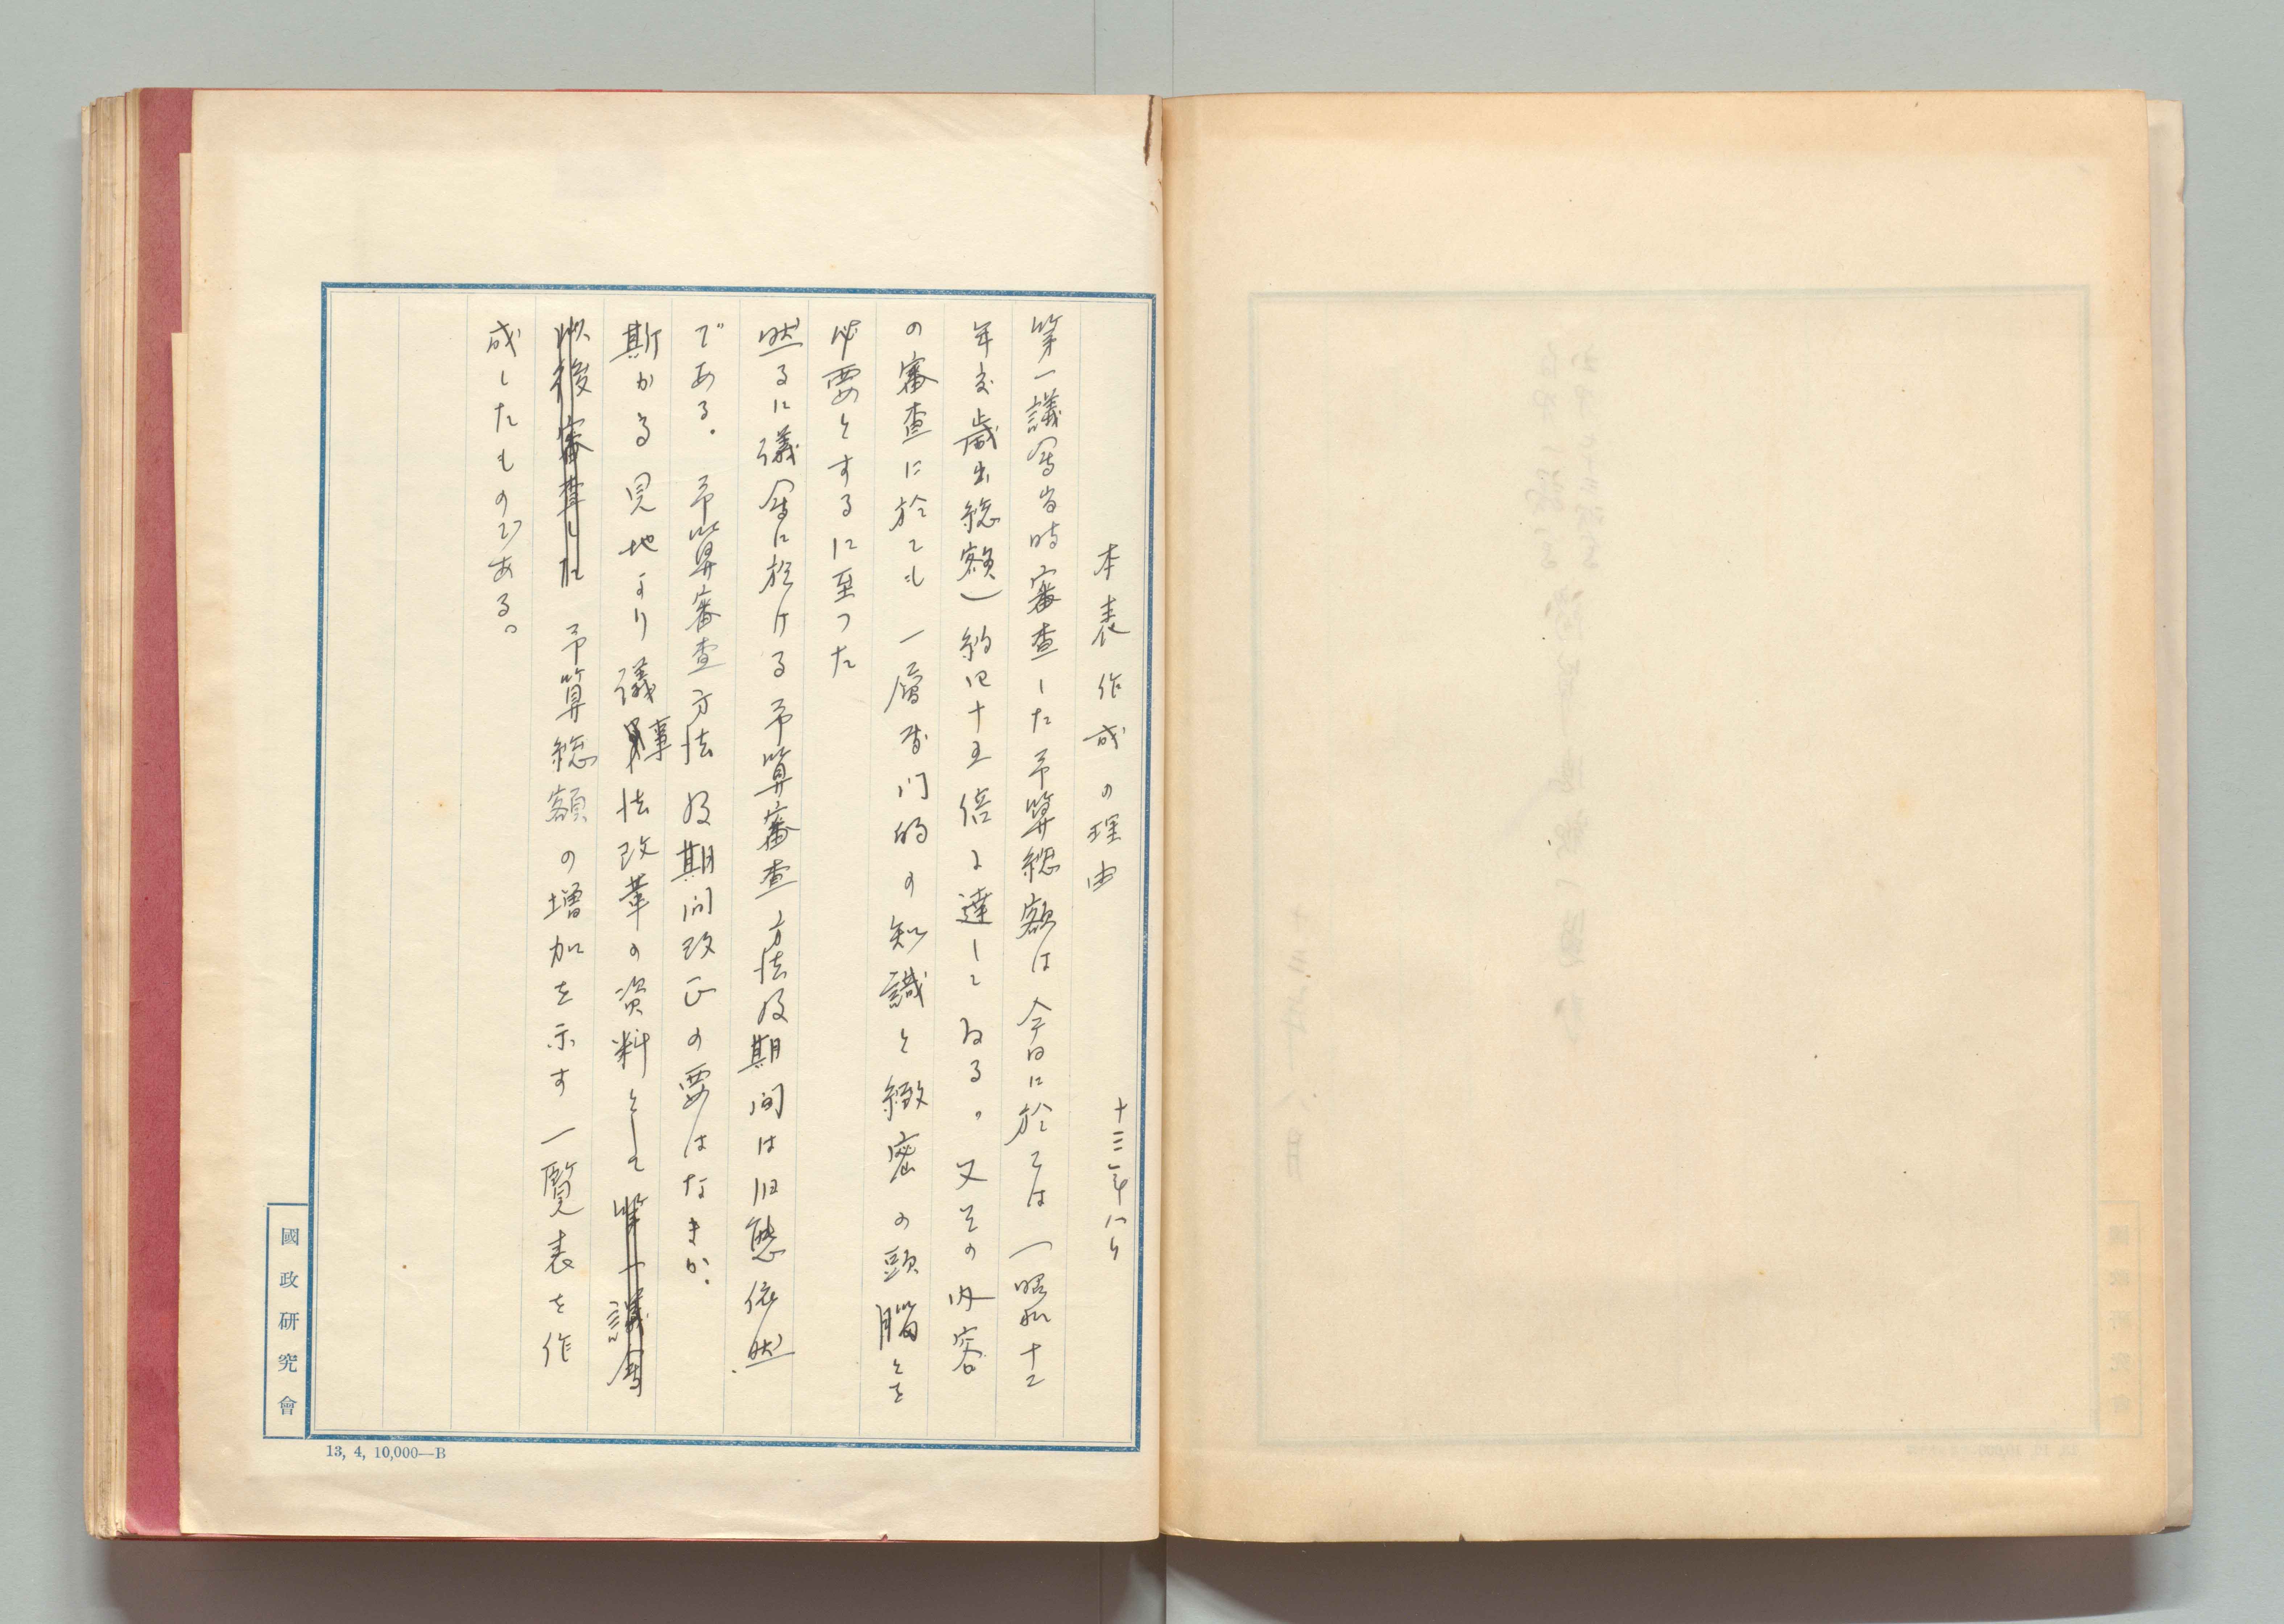 本表作成の理由
十三年八月
第一議会当時審査した予算総額は今日に於ては(昭和十三
年度歳出総額)約四十五倍に達してゐる。又その内容
の審査に於ても一層専门的の知識と緻密の頭脳とを
必要とするに至つた
然るに議会に於ける予算審査方法及期间は旧態依然
である。予算審査方法及期间改正の要はなきか。
斯かる見地より議事法改革の資料として第一議会
以後審査した予算総額の増加を示す一覧表を作
成したものである。
國政研究會
13, 4, 10,000—B